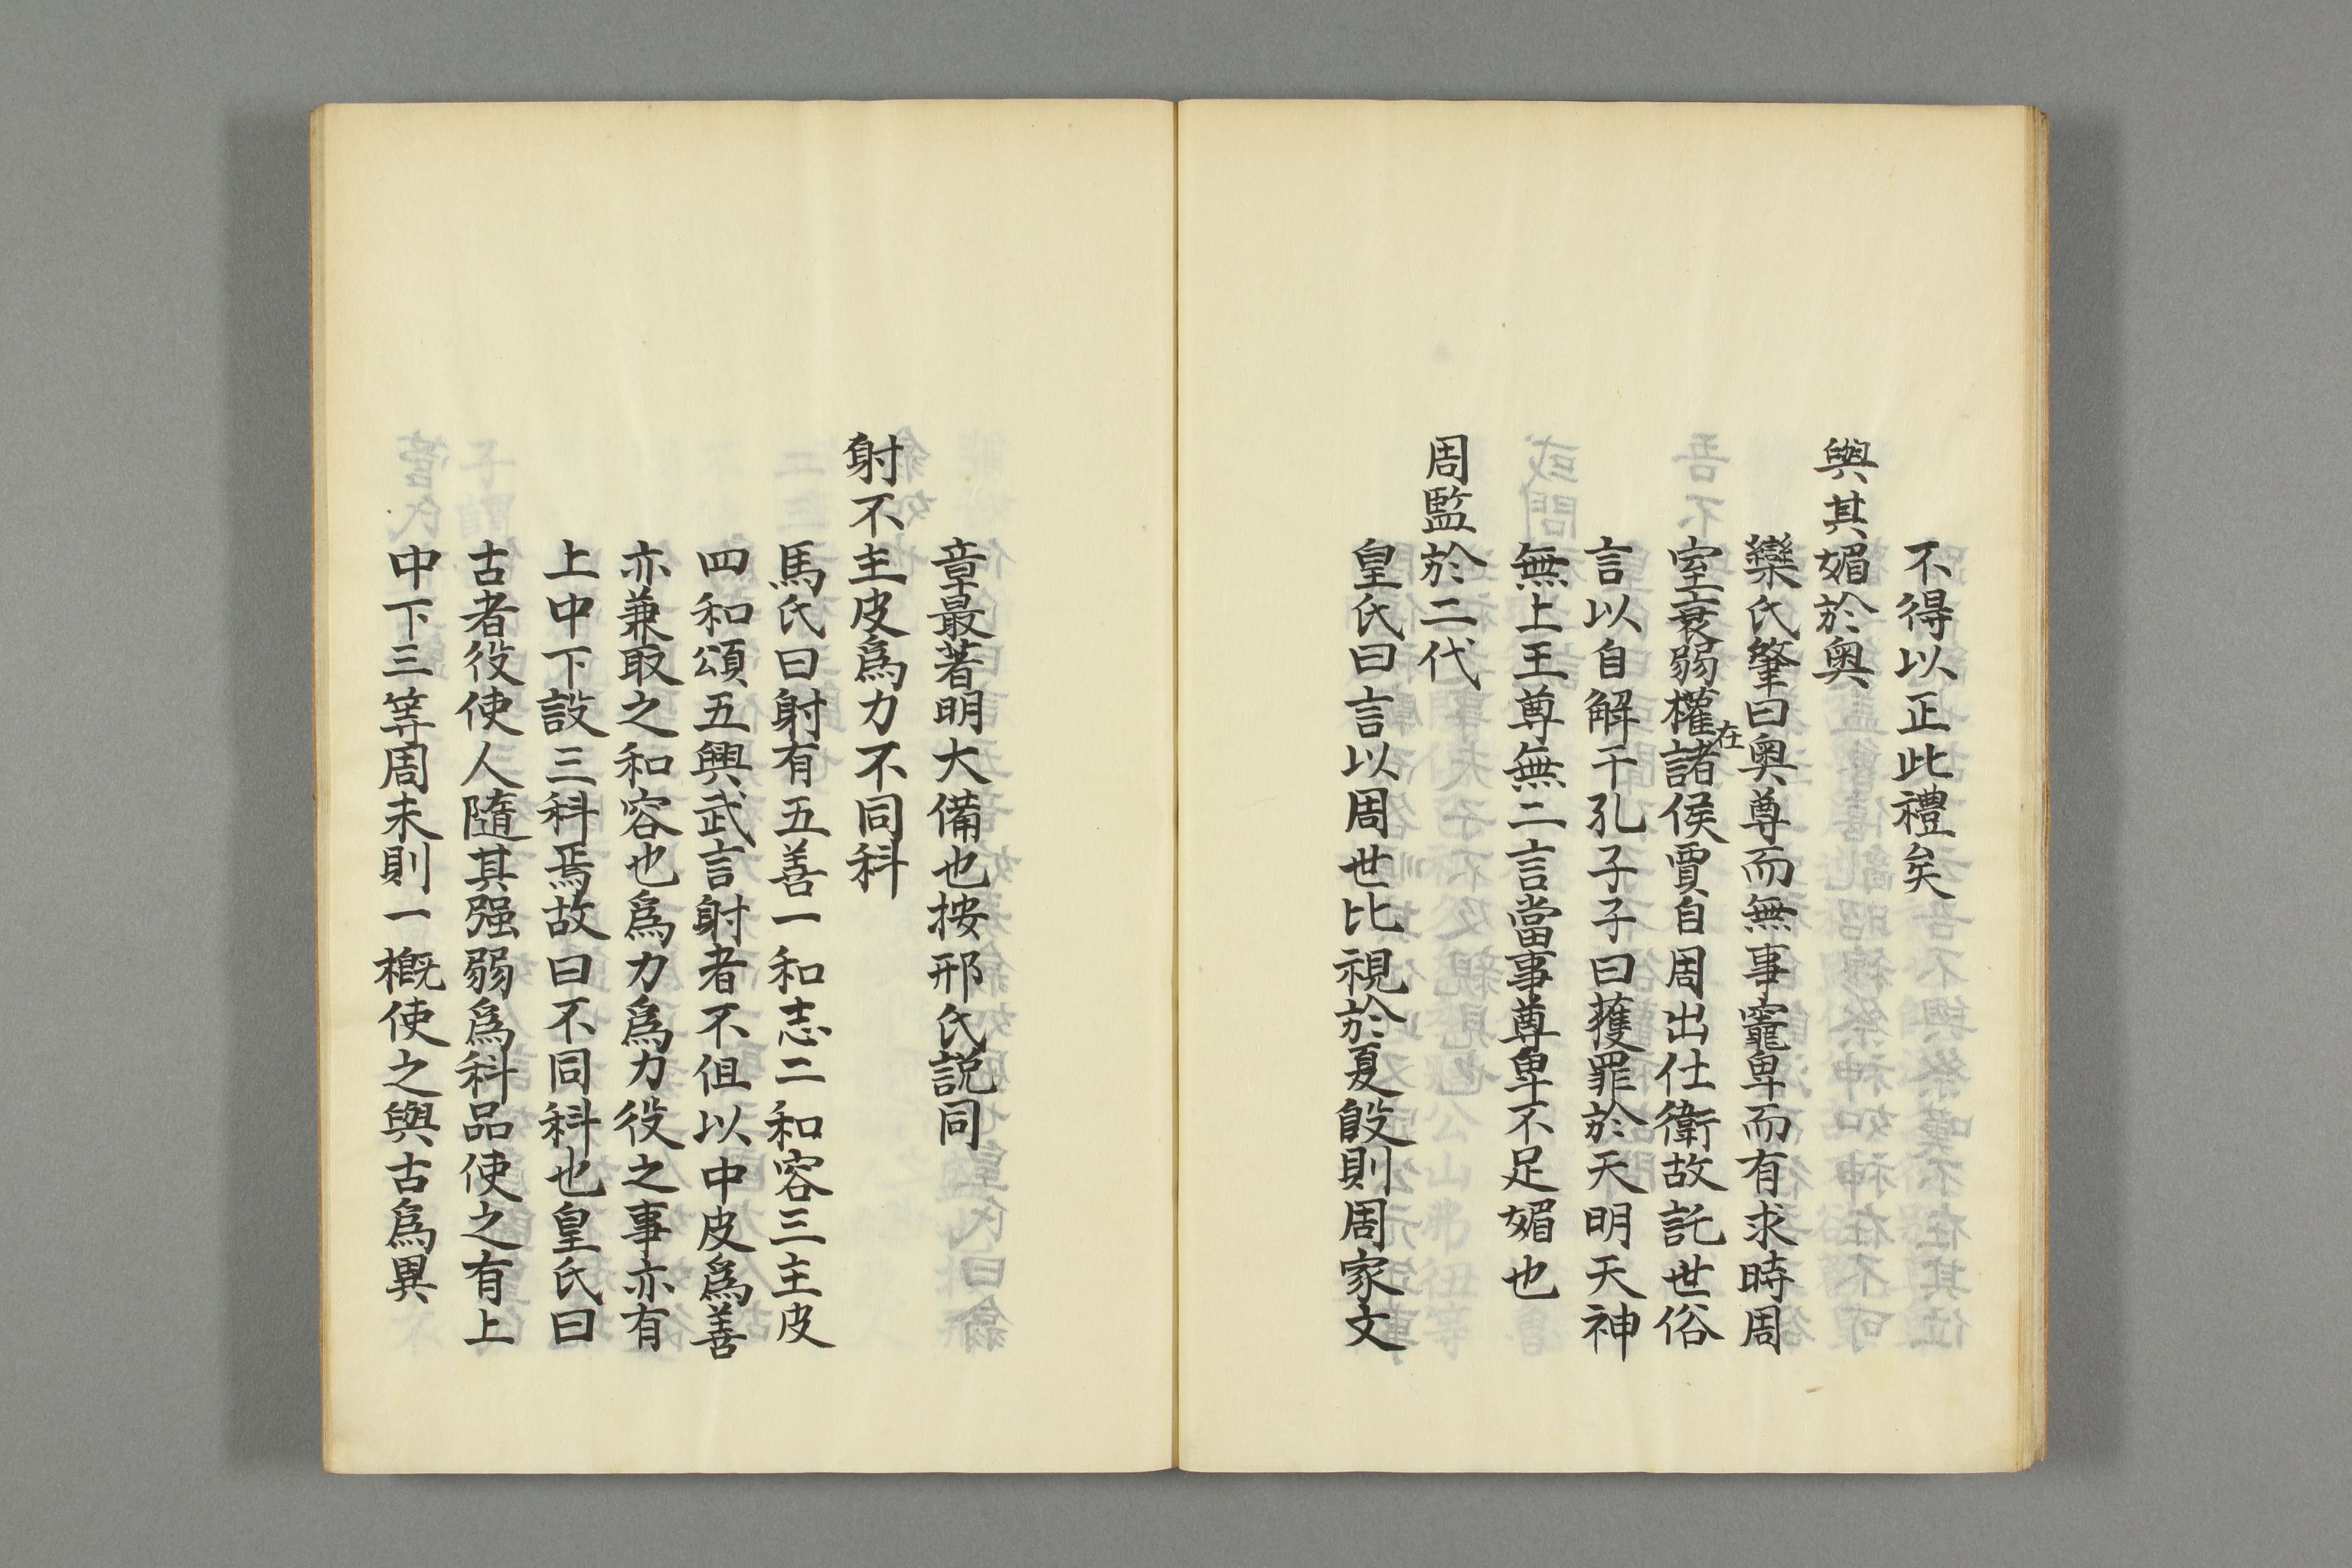 不得以正此禮矣
與其媚於奧
欒氏肇曰奧尊而無事竈卑而有求時周
室衰弱權在諸侯賈自周出仕衛故託世俗
言以自解于孔子子曰獲罪於天明天神
無上王尊無二言當事尊卑不足媚也
周監於二代
皇氏曰言以周世比視於夏殷則周家文
章最著明大備也按邢氏説同
射不主皮爲力不同科
馬氏曰射有五善一和志二和容三主皮
四和頌五興武言射者不但以中皮爲善
亦兼取之和容也爲力爲力役之事亦有
上中下設三科焉故曰不同科也皇氏曰
古者役使人隨其强弱爲科品使之有上
中下三等周末則一概使之與古爲異